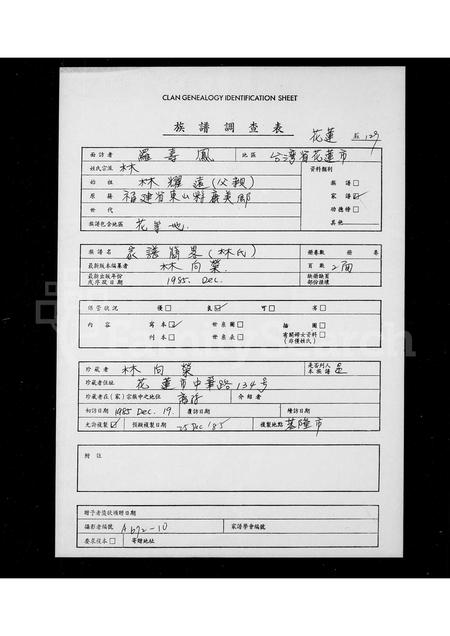 CLAN GENEALOGY IDENTIFICATION SHEET
族譜調查表
花蓮
面訪者 羅壽鳳 地區 台灣省花蓮市
姓氏宗派 林 資料類別
始祖 林耀遠(父親) 族譜□
原籍 福建省東山縣 家譜☑
世代 功德榜□
族譜包含地區 花蓮地 其他
族譜名 家譜簡畧(林氏) 冊卷數 冊 卷
最新版本編纂者 林向榮 頁數 2面
最新出版年份或序跋日期 1985. Dec. 缺冊缺頁部份接續
保管狀況 優□ 良☑ 可□ 劣□
內容 寫本☑ 世系圖□ 插圖□
刊本□ 世系表□ 有關婦女資料□(非僅姓氏)
珍藏者 林向榮 是否列入本族譜 是
珍藏者住址 花蓮市中華路134号
珍藏者在(家)宗族中之地位 介紹者
初訪日期 1985 Dec. 19. 覆訪日期 續訪日期
允許複製☑ 預擬複製日期 25 Dec '85 複製地點 基隆市
附註
贈予者獎狀頒贈日期
攝影者編號 A 672-10 家譜學會編號
要求複本□ 寄贈地址